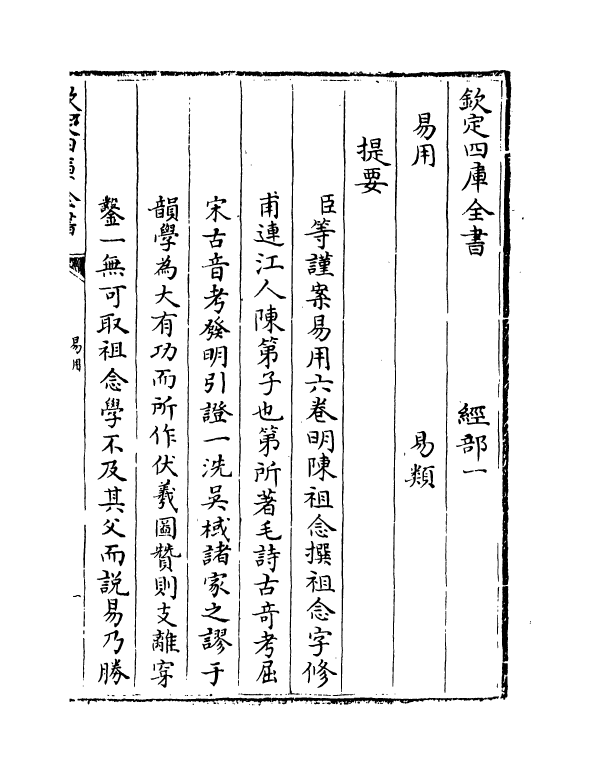 欽定四庫全書 經部一
易用 易類
提要
臣等謹案易用六卷明陳祖念撰祖念字修
甫連江人陳第子也第所著毛詩古音考屈
宋古音考發明引證一洗吳棫諸家之謬于
韻學為大有功而所作伏羲圖贊則支離穿
鑿一無可取祖念學不及其父而説易乃勝
欽定四庫全書
易用
一